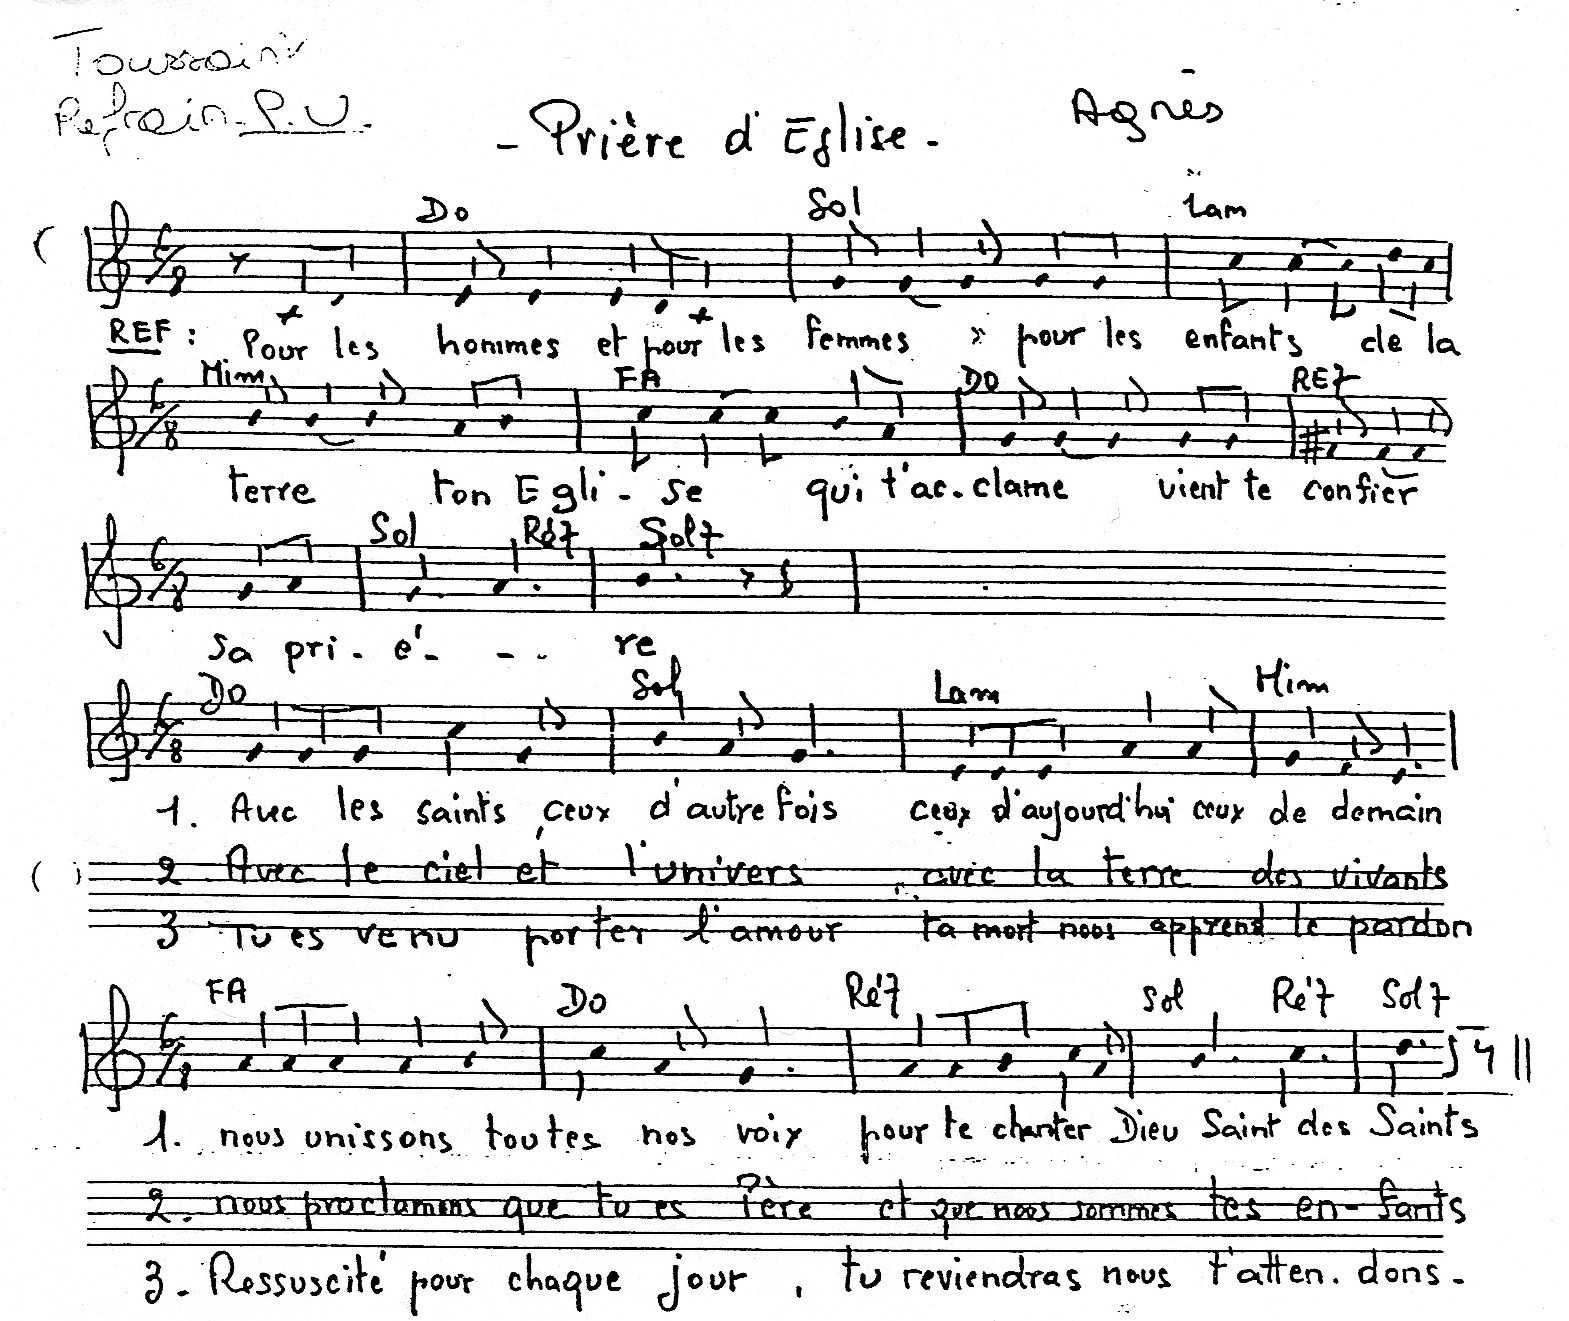 Toussaint
Refrain. P.U.
Agnès
- Prière d'Eglise -
Do Sol Lam
6/8
REF : Pour les hommes et pour les femmes " pour les enfants de la
Mim FA DO RE7
6/8
terre ton Egli - se qui t'ac. clame vient te confier
Sol Ré7 Sol7
6/8
sa pri - é - - - re
Do Sol Lam Mim
6/8
1. Avec les saints, ceux d'autre fois ceux d'aujourd'hui ceux de demain
2 Avec le ciel et l'univers avec la terre des vivants
3 Tu es venu porter l'amour ta mort nous apprend le pardon
FA Do Ré7 Sol Ré7 Sol7
6/8
1. nous unissons toutes nos voix pour te chanter Dieu Saint des Saints
2. nous proclamons que tu es Père et que nous sommes tes en-fants
3. Ressuscité pour chaque jour, tu reviendras nous t'atten. dons.